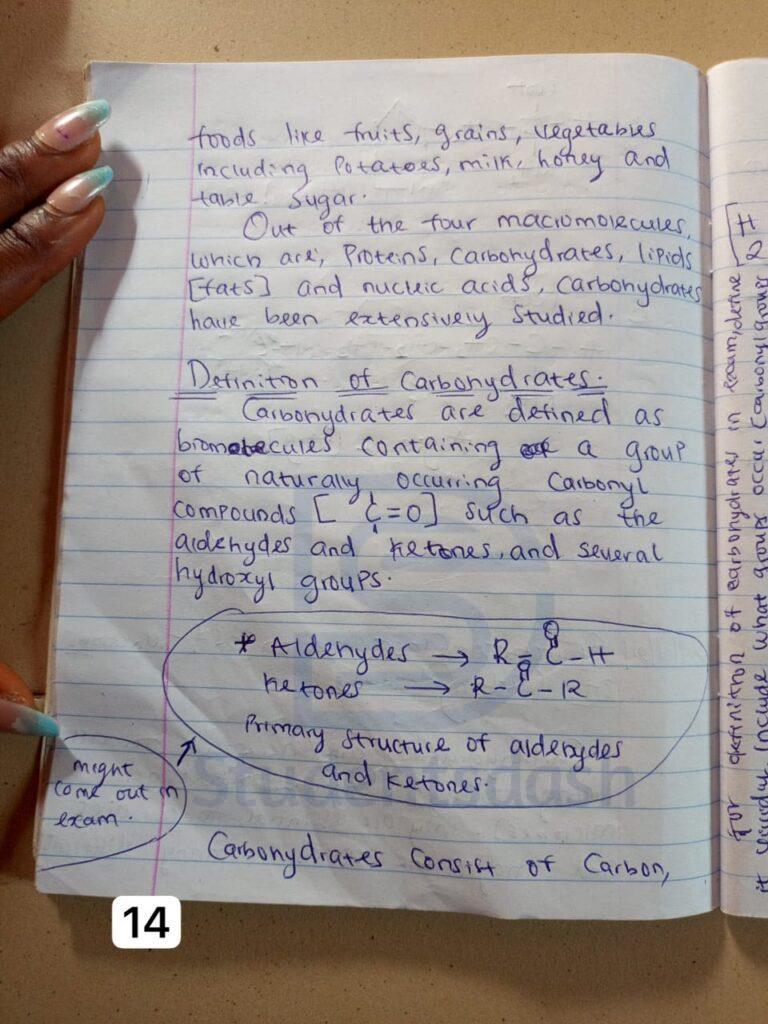 foods like fruits, grains, vegetables
including Potatoes, milk, honey and
table sugar.
Out of the four macromolecules,
which are, Proteins, carbohydrates, lipids
[fats] and nucleic acids, carbohydrates
have been extensively studied.
Definition of Carbohydrates.
Carbohydrates are defined as
biomolecules containing a group
of naturally occurring Carbonyl
compounds [ C=O] such as the
aldehydes and ketones, and several
hydroxyl groups.
* Aldehydes → R-C-H
O
Ketones → R-C-R
O
Primary structure of aldehydes
and ketones.
might
come out in
exam.
Carbohydrates consist of Carbon,
Studentsdash
14
For definition of carbohydrates in exam, define
it include what groups occur (carbonyl groups
H
2